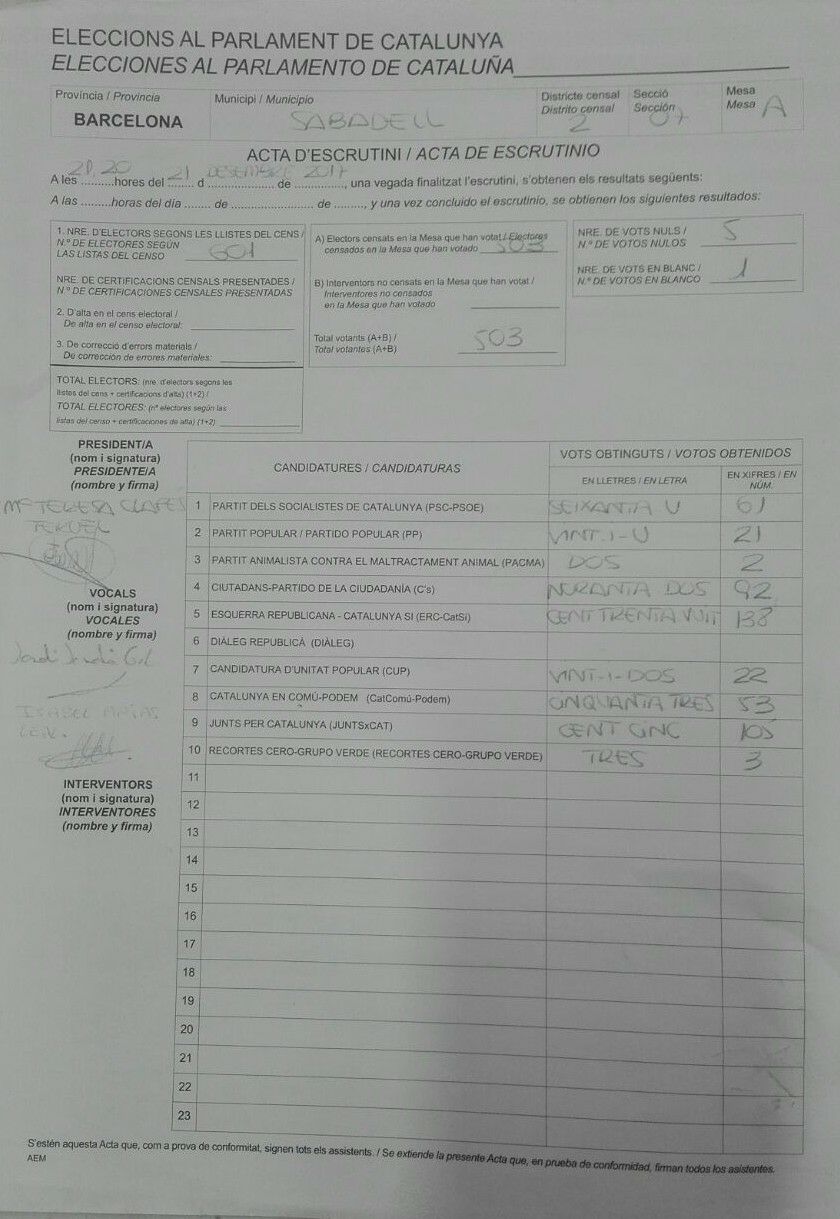 ELECCIONS AL PARLAMENT DE CATALUNYA
ELECCIONES AL PARLAMENTO DE CATALUÑA
Província / Provincia
BARCELONA
Municipi / Municipio
SABADELL
Districte censal
Distrito censal
2
Secció
Sección
07
Mesa
Mesa
A
ACTA D'ESCRUTINI / ACTA DE ESCRUTINIO
A les 21,20 hores del 21 d DESEMBRE de 2017, una vegada finalitzat l'escrutini, s'obtenen els resultats següents:
A las .........horas del día ....... de ....................... de ........, y una vez concluido el escrutinio, se obtienen los siguientes resultados:
1. NRE. D'ELECTORS SEGONS LES LLISTES DEL CENS /
N.º DE ELECTORES SEGÚN
LAS LISTAS DEL CENSO 601
NRE. DE CERTIFICACIONS CENSALS PRESENTADES /
N.º DE CERTIFICACIONES CENSALES PRESENTADAS
2. D'alta en el cens electoral /
De alta en el censo electoral:
3. De correcció d'errors materials /
De corrección de errores materiales:
TOTAL ELECTORS: (nre. d'electors segons les
llistes del cens + certificacions d'alta) (1+2) /
TOTAL ELECTORES: (nº electores según las
listas del censo + certificaciones de alta) (1+2)
A) Electors censats en la Mesa que han votat / Electores
censados en la Mesa que han votado 503
B) Interventors no censats en la Mesa que han votat /
Interventores no censados
en la Mesa que han votado
Total votants (A+B) /
Total votantes (A+B) 503
NRE. DE VOTS NULS /
N.º DE VOTOS NULOS 5
NRE. DE VOTS EN BLANC /
N.º DE VOTOS EN BLANCO 1
PRESIDENT/A
(nom i signatura)
PRESIDENTE/A
(nombre y firma)
Mª TERESA CLAPES
TERUEL
VOCALS
(nom i signatura)
VOCALES
(nombre y firma)
ISABEL ARIAS
INTERVENTORS
(nom i signatura)
INTERVENTORES
(nombre y firma)
CANDIDATURES / CANDIDATURAS
VOTS OBTINGUTS / VOTOS OBTENIDOS
EN LLETRES / EN LETRA
EN XIFRES / EN
NÚM.
1 PARTIT DELS SOCIALISTES DE CATALUNYA (PSC-PSOE) SEIXANTA U 61
2 PARTIT POPULAR / PARTIDO POPULAR (PP) VINT-I-U 21
3 PARTIT ANIMALISTA CONTRA EL MALTRACTAMENT ANIMAL (PACMA) DOS 2
4 CIUTADANS-PARTIDO DE LA CIUDADANÍA (C's) NORANTA DOS 92
5 ESQUERRA REPUBLICANA - CATALUNYA SI (ERC-CatSí) CENT TRENTA VUIT 138
6 DIÀLEG REPUBLICÀ (DIÀLEG)
7 CANDIDATURA D'UNITAT POPULAR (CUP) VINT-I-DOS 22
8 CATALUNYA EN COMÚ-PODEM (CatComú-Podem) CINQUANTA TRES 53
9 JUNTS PER CATALUNYA (JUNTSxCAT) CENT CINC 105
10 RECORTES CERO-GRUPO VERDE (RECORTES CERO-GRUPO VERDE) TRES 3
11
12
13
14
15
16
17
18
19
20
21
22
23
S'estén aquesta Acta que, com a prova de conformitat, signen tots els assistents. / Se extiende la presente Acta que, en prueba de conformidad, firman todos los asistentes.
AEM